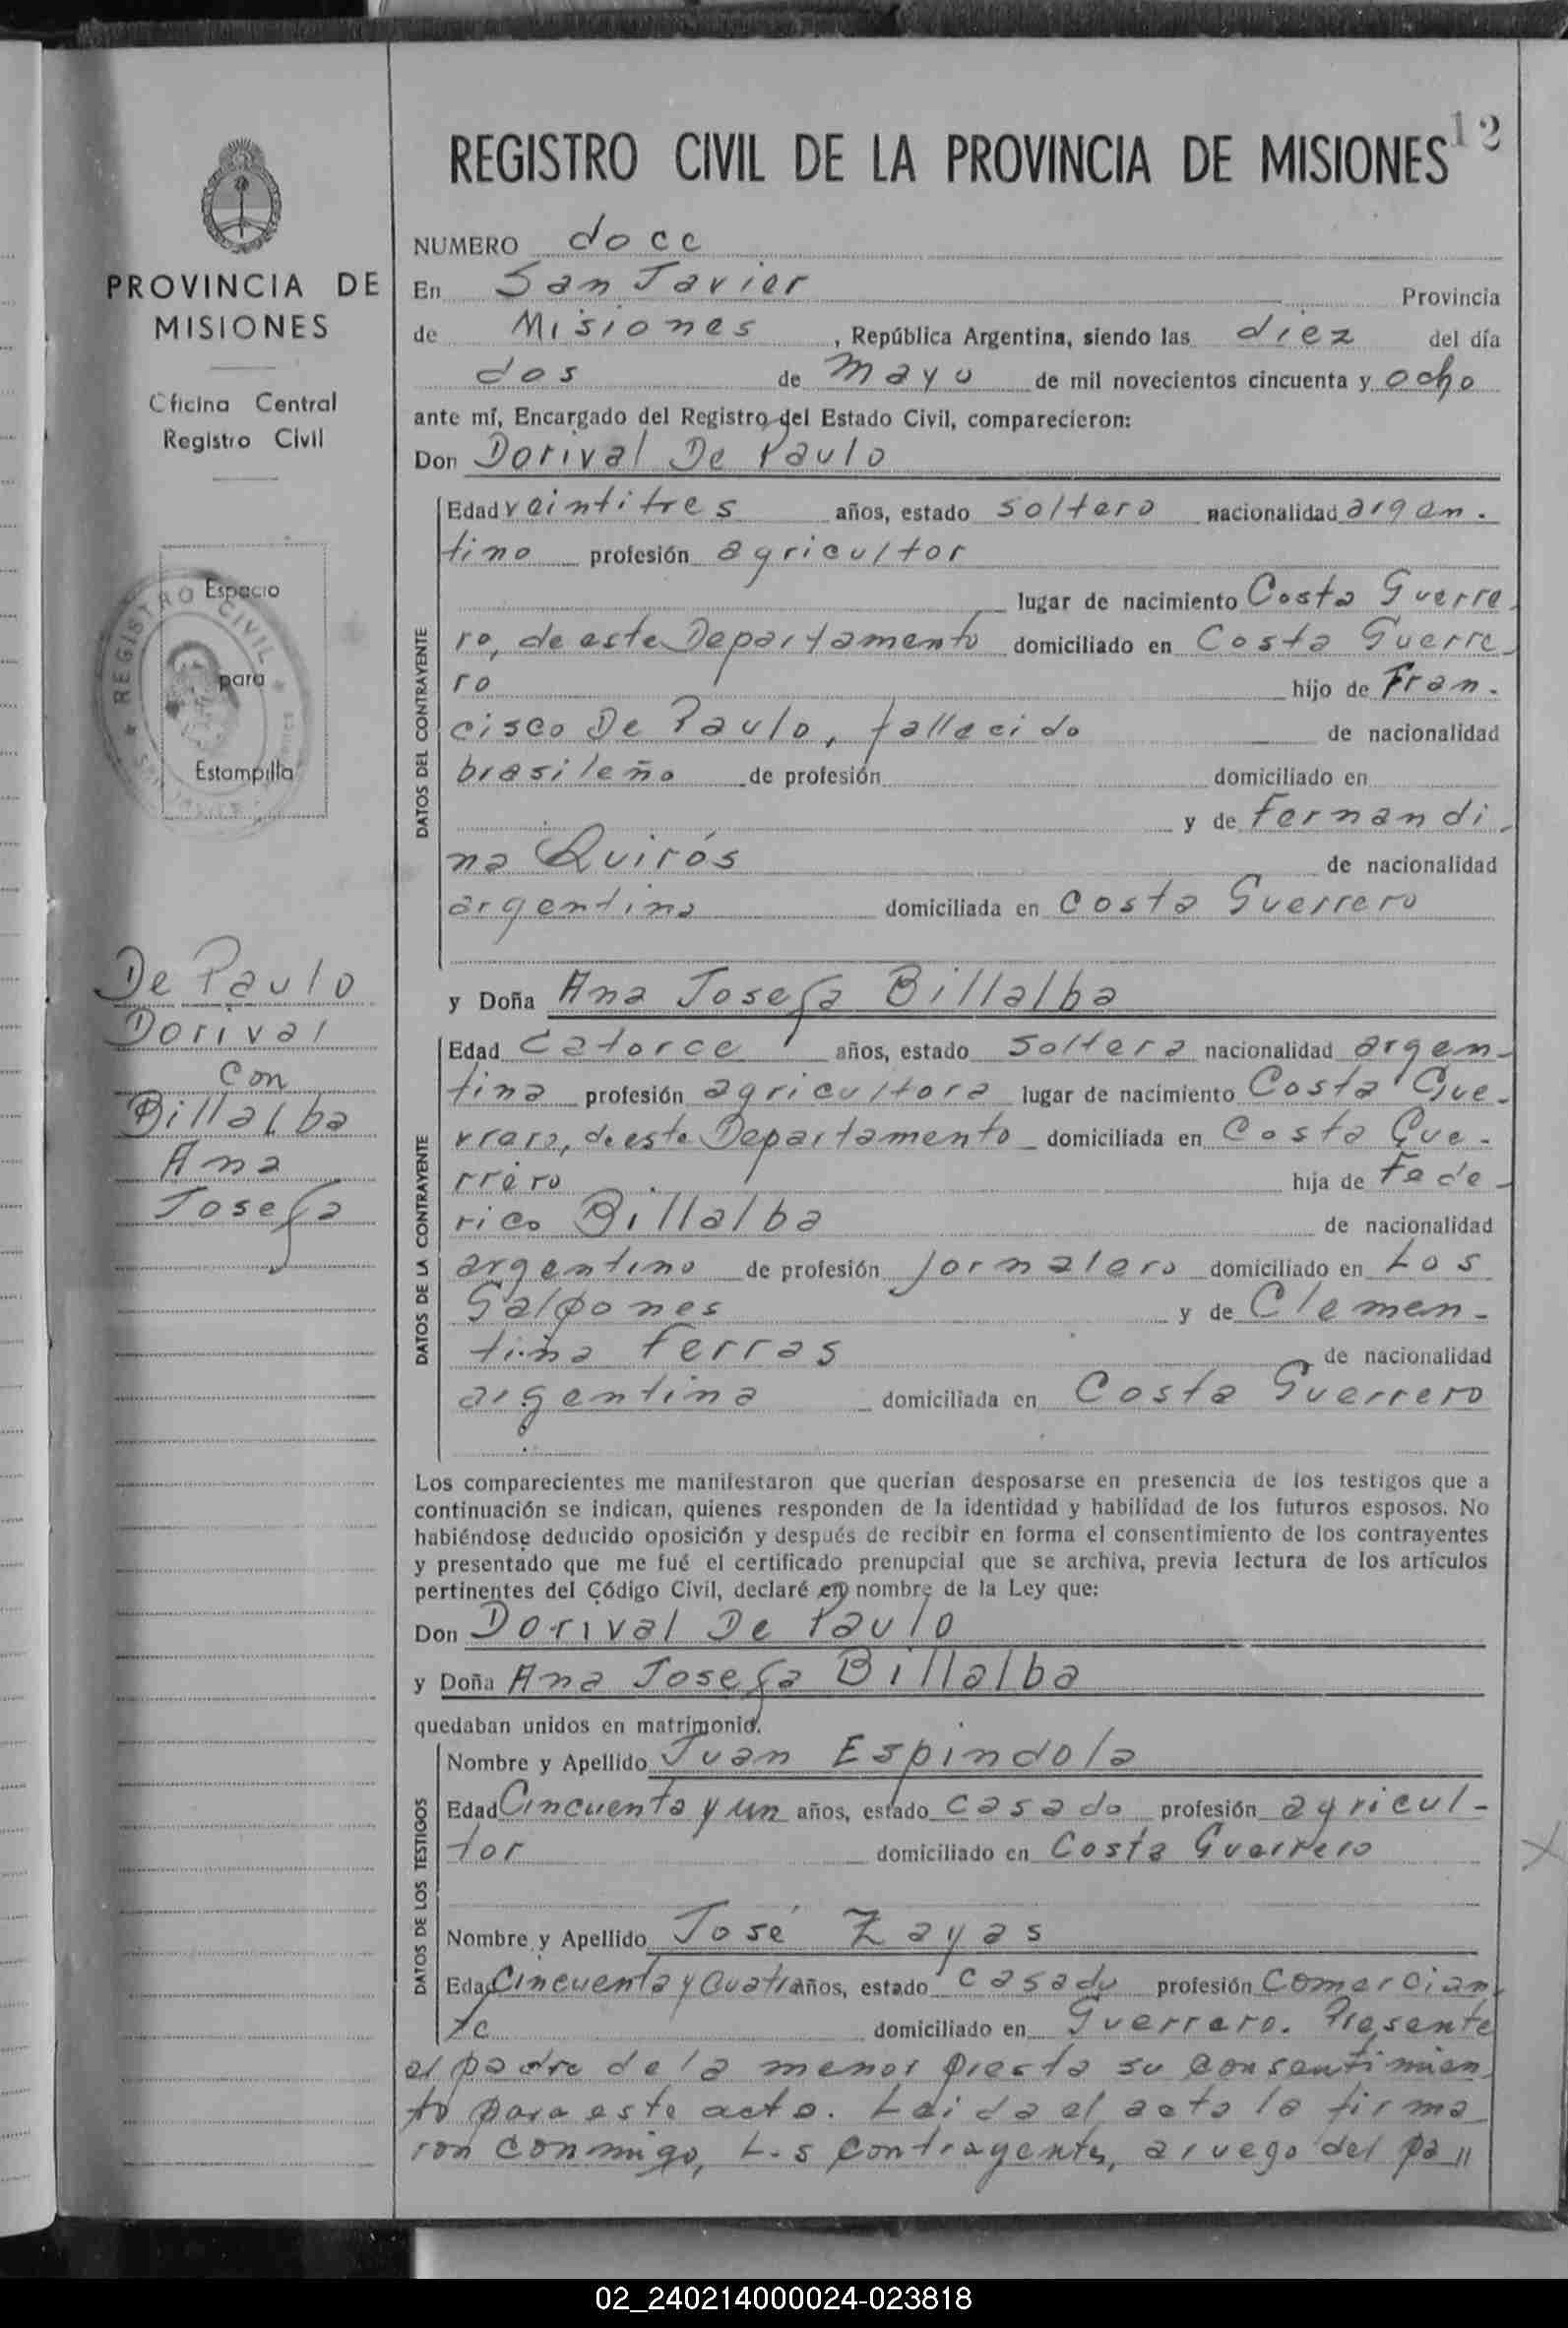 12
REGISTRO CIVIL DE LA PROVINCIA DE MISIONES
PROVINCIA DE
MISIONES
Oficina Central
Registro Civil
REGISTRO CIVIL
Espacio
para
Estampilla
De Paulo
Dorival
con
Billalba
Ana
Josefa
NUMERO doce
En San Javier Provincia
de Misiones, República Argentina, siendo las diez del día
dos de Mayo de mil novecientos cincuenta y ocho
ante mí, Encargado del Registro del Estado Civil, comparecieron:
Don Dorival De Paulo
DATOS DEL CONTRAYENTE
Edad veintitres años, estado soltero nacionalidad argen-
tino profesión agricultor
lugar de nacimiento Costa Guerre-
ro, de este Departamento domiciliado en Costa Guerre-
ro hijo de Fran-
cisco De Paulo, fallecido de nacionalidad
brasileño de profesión domiciliado en
y de Fernandi-
na Quirós de nacionalidad
argentina domiciliada en Costa Guerrero
y Doña Ana Josefa Billalba
DATOS DE LA CONTRAYENTE
Edad Catorce años, estado soltera nacionalidad argen-
tina profesión agricultora lugar de nacimiento Costa Gue-
rrero, de este Departamento domiciliada en Costa Gue-
rrero hija de Fede-
rico Billalba de nacionalidad
argentino de profesión jornalero domiciliado en Los
Galpones y de Clemen-
tina Ferras de nacionalidad
argentina domiciliada en Costa Guerrero
Los comparecientes me manifestaron que querían desposarse en presencia de los testigos que a
continuación se indican, quienes responden de la identidad y habilidad de los futuros esposos. No
habiéndose deducido oposición y después de recibir en forma el consentimiento de los contrayentes
y presentado que me fué el certificado prenupcial que se archiva, previa lectura de los artículos
pertinentes del Código Civil, declaré en nombre de la Ley que:
Don Dorival De Paulo
y Doña Ana Josefa Billalba
quedaban unidos en matrimonio.
DATOS DE LOS TESTIGOS
Nombre y Apellido Juan Espindola
Edad Cincuenta y un años, estado casado profesión agricul-
tor domiciliado en Costa Guerrero
Nombre y Apellido José Zayas
Edad Cincuenta y cuatro años, estado casado profesión Comercian-
te domiciliado en Guerrero. Presente
el padre de la menor presta su consentimien-
to para este acto. Leida el acta la firma-
ron conmigo, Los contrayentes, a ruego del pa=
02_240214000024-023818